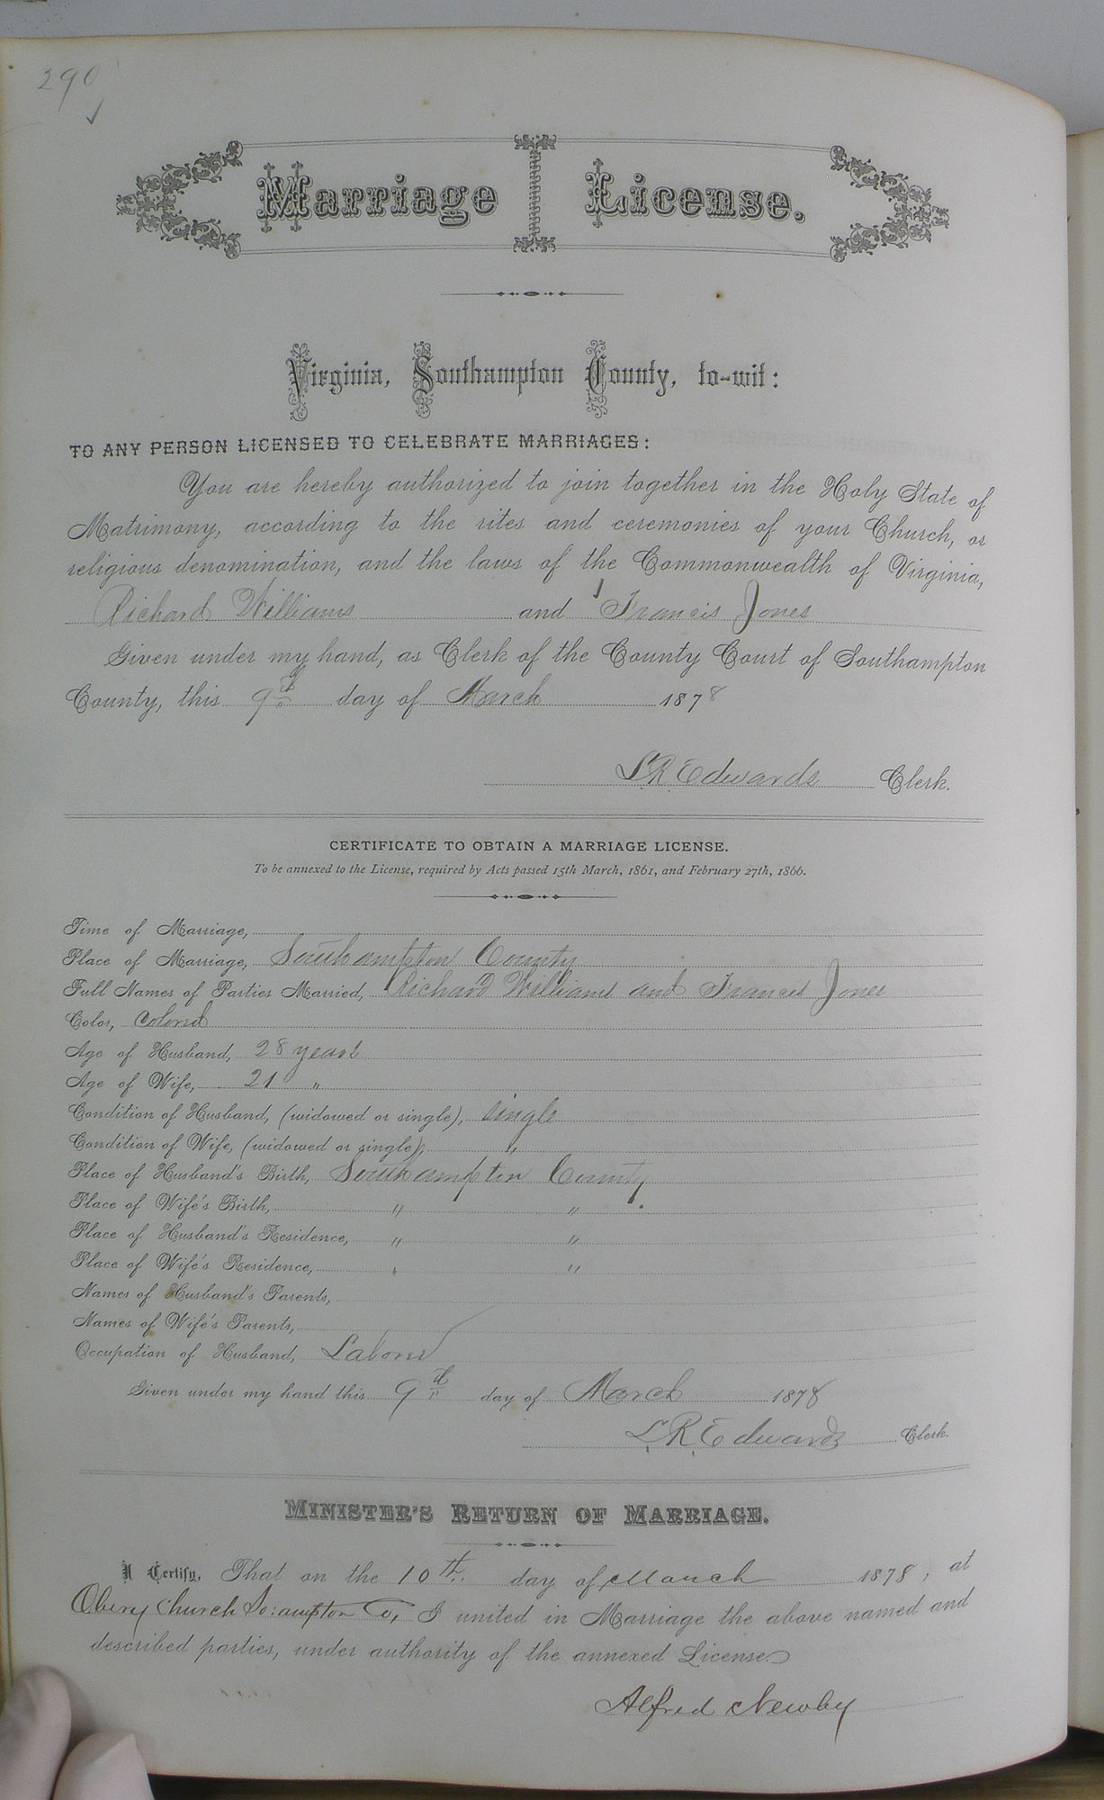 290
Marriage License.
Virginia, Southampton County, to-wit:
TO ANY PERSON LICENSED TO CELEBRATE MARRIAGES:
You are hereby authorized to join together in the Holy State of
Matrimony, according to the rites and ceremonies of your Church, or
religious denomination, and the laws of the Commonwealth of Virginia,
Richard Williams and Francis Jones
Given under my hand, as Clerk of the County Court of Southampton
County, this 9th day of March 1878
L.R. Edwards Clerk.
CERTIFICATE TO OBTAIN A MARRIAGE LICENSE.
To be annexed to the License, required by Acts passed 15th March, 1861, and February 27th, 1866.
Time of Marriage,
Place of Marriage, Southampton County
Full Names of Parties Married, Richard Williams and Francis Jones
Color, Colored
Age of Husband, 28 years
Age of Wife, 21 "
Condition of Husband, (widowed or single), Single
Condition of Wife, (widowed or single), "
Place of Husband's Birth, Southampton County
Place of Wife's Birth, " "
Place of Husband's Residence, " "
Place of Wife's Residence, " "
Names of Husband's Parents,
Names of Wife's Parents,
Occupation of Husband, Laborer
Given under my hand this 9th day of March 1878
L.R. Edwards Clerk.
MINISTER'S RETURN OF MARRIAGE.
I Certify, That on the 10th. day of March 1878, at
Church So:ampton Co, I united in Marriage the above named and
described parties, under authority of the annexed License
Alfred Newby